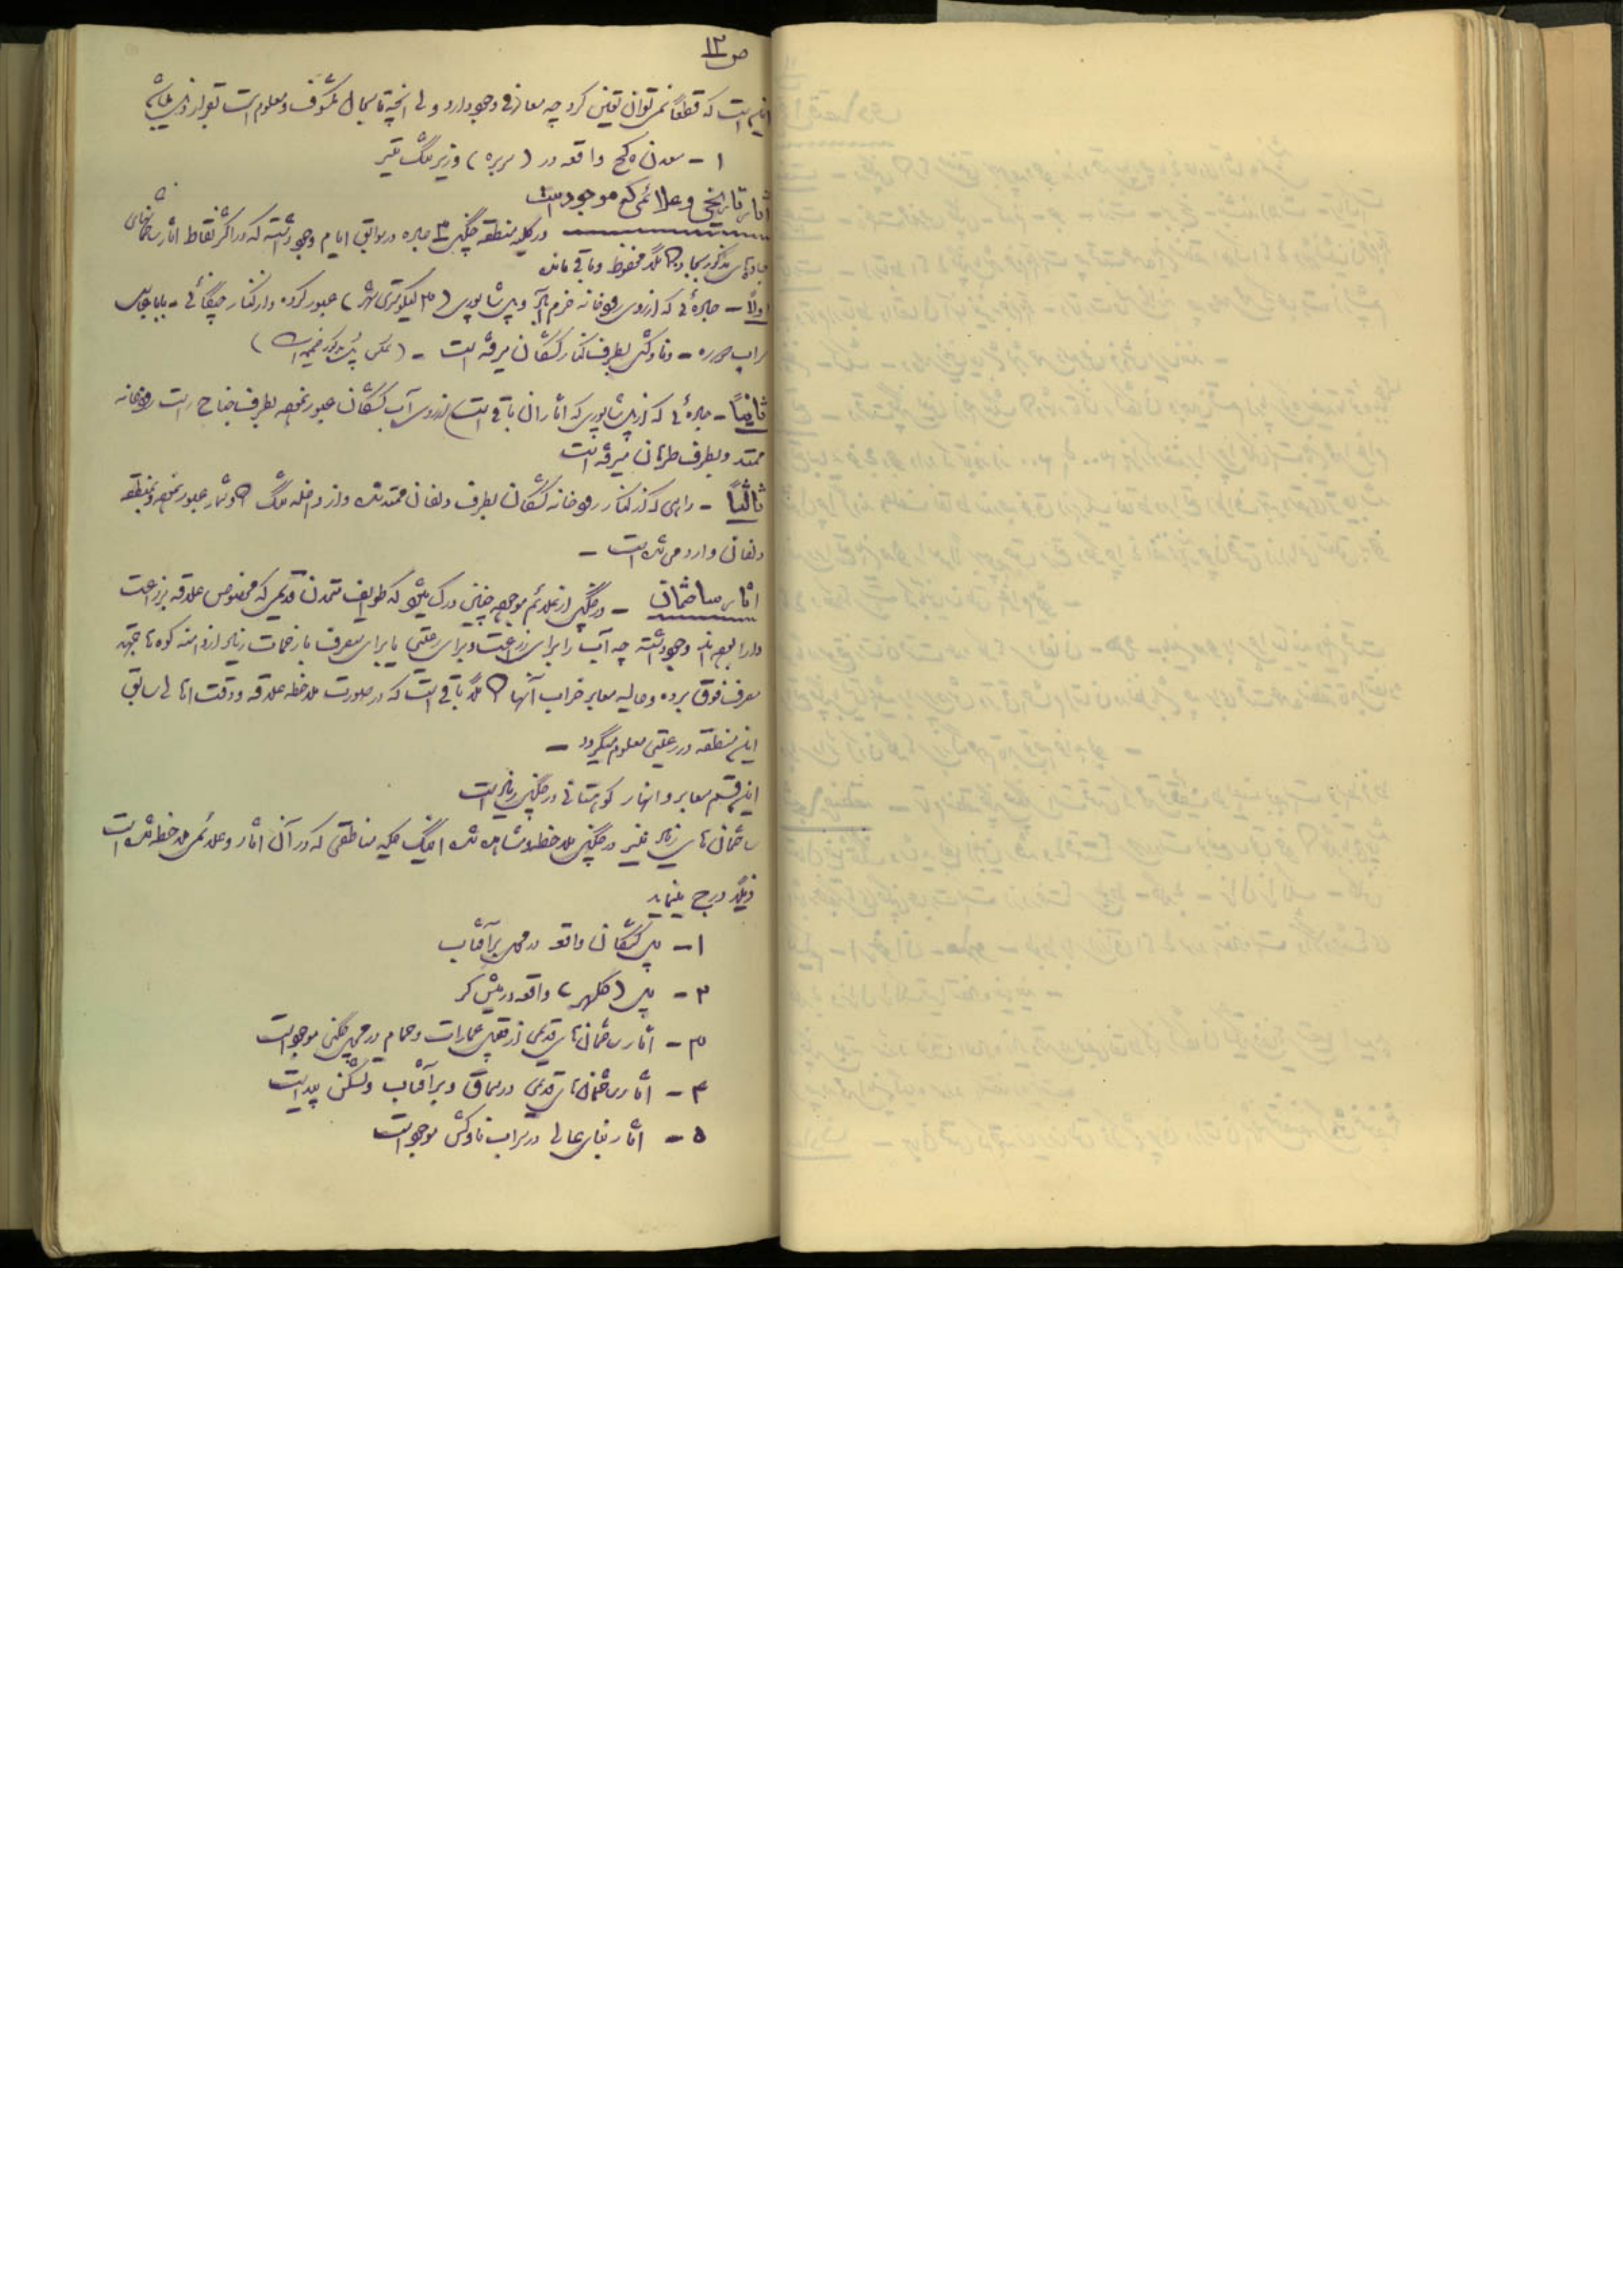 ص ۱۲
این است که قطعاً نمیتوان تعیین کرد چه معادنی وجود دارد ولی آنچه تا بحال مکشوف و معلوم است بقرار ذیل میباشد
۱ – معدن گچ واقعه در (سربره) و زیر تنگ تیر
آثار تاریخی و علائمی که موجود است
در کلیه منطقه چگنی ۳ جاده در سوابق ایام وجود داشته که در اکثر نقاط آثار ساختمانهای
جاده‌های مذکور بجا و کاملاً محفوظ و باقی مانده
اولاً – جاده‌ئی که از روی رودخانه خرم آباد و پل شاپوری (۲ کیلومتری شهر) عبور کرده و از کنار چنگائی – بابا عباس
سراب دوره – و ناوکش بطرف کنار کشکان میرفته است – (عکس پل مذکور ضمیمه است)
ثانیاً – جاده‌ئی که از پل شاپوری که آثار آن باقی است از روی آب کشکان عبور نموده بطرف جناح راست رودخانه
ممتد و بطرف طرهان میرفته است
ثالثاً – راهی که از کنار رودخانه کشکان بطرف دلفان ممتد شده و از داخله تنگ گاوشمار عبور نموده و بمنطقه
دلفان وارد می‌شده است –
آثار ساختمان – در چگنی از علائم موجوده چنین درک میشود که طوایف متمدن قدیمی که مخصوص علاقه بزراعت
دارا بوده‌اند وجود داشته چه آب را برای زراعت و برای رعیتی یا برای مصرف با زحمات زیاد از دامنه کوه‌ها بجهة
مصرف فوق برده و حالیه معابر خراب آنها کاملاً باقی است که در صورت ملاحظه علاقه و دقت اهالی سابق
این منطقه در رعیتی معلوم میگردد –
این قسم معابر و انهار کوهستانی در چگنی زیاد است
ساختمان‌های زیاد نیز در چگنی ملاحظه و مشاهده شده اینک کلیه مناطقی که در آن آثار و علائمی ملاحظه شده است
ذیلاً درج مینماید
۱ – پل کشکان واقعه در محل برآفتاب
۲ – پل (کلهر) واقعه در پیش کر
۳ – آثار ساختمان‌های قدیمی از قبیل عمارات و حمام در محل چگنی موجود است
۴ – آثار ساختمان‌های قدیمی در سماق و برآفتاب و تشکن پیدا است
۵ – آثار بنای عالی در سراب ناوکش موجود است